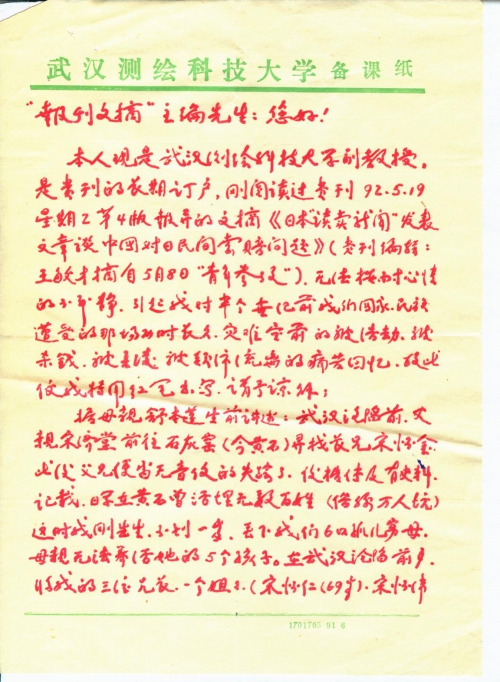 武汉测绘科技大学备课纸
"報刊文摘"主编先生：您好！
本人现是武汉测绘科技大学副教授。
是贵刊的长期订户，刚阅读过贵刊92.5.19
星期2第4版报弄的文摘《日本"读卖新闻"发表
文章谈中国对日民间索赔问题》（贵刊编辑：
王 摘自5月8日"青年参考"）。无法按内心情
的不平静，引起我对半个世纪前我们国家民族
遭受的那场 时长久、灾难空前的被 劫、被
杀戮、被 、被 的痛苦回忆，故此
使我特用红笔书写，请予谅解；
据母亲舒本莲生前讲述：武汉沦陷前，父
亲宋济堂前往石灰窑（今黄石）寻找长兄宋怀金
此后父兄便杳无音信的失踪了，后据传及有史料
记载，日军在黄石曾活埋无数百姓（俗称万人坑）
这时我刚出生，不到一岁，丢下我们6口孤儿寡母，
母亲无法养活她的5个孩子。在武汉沦陷前夕，
将我的三位兄长、一个姐 （宋怀仁（69岁）、宋怀伟
1701705 91 6